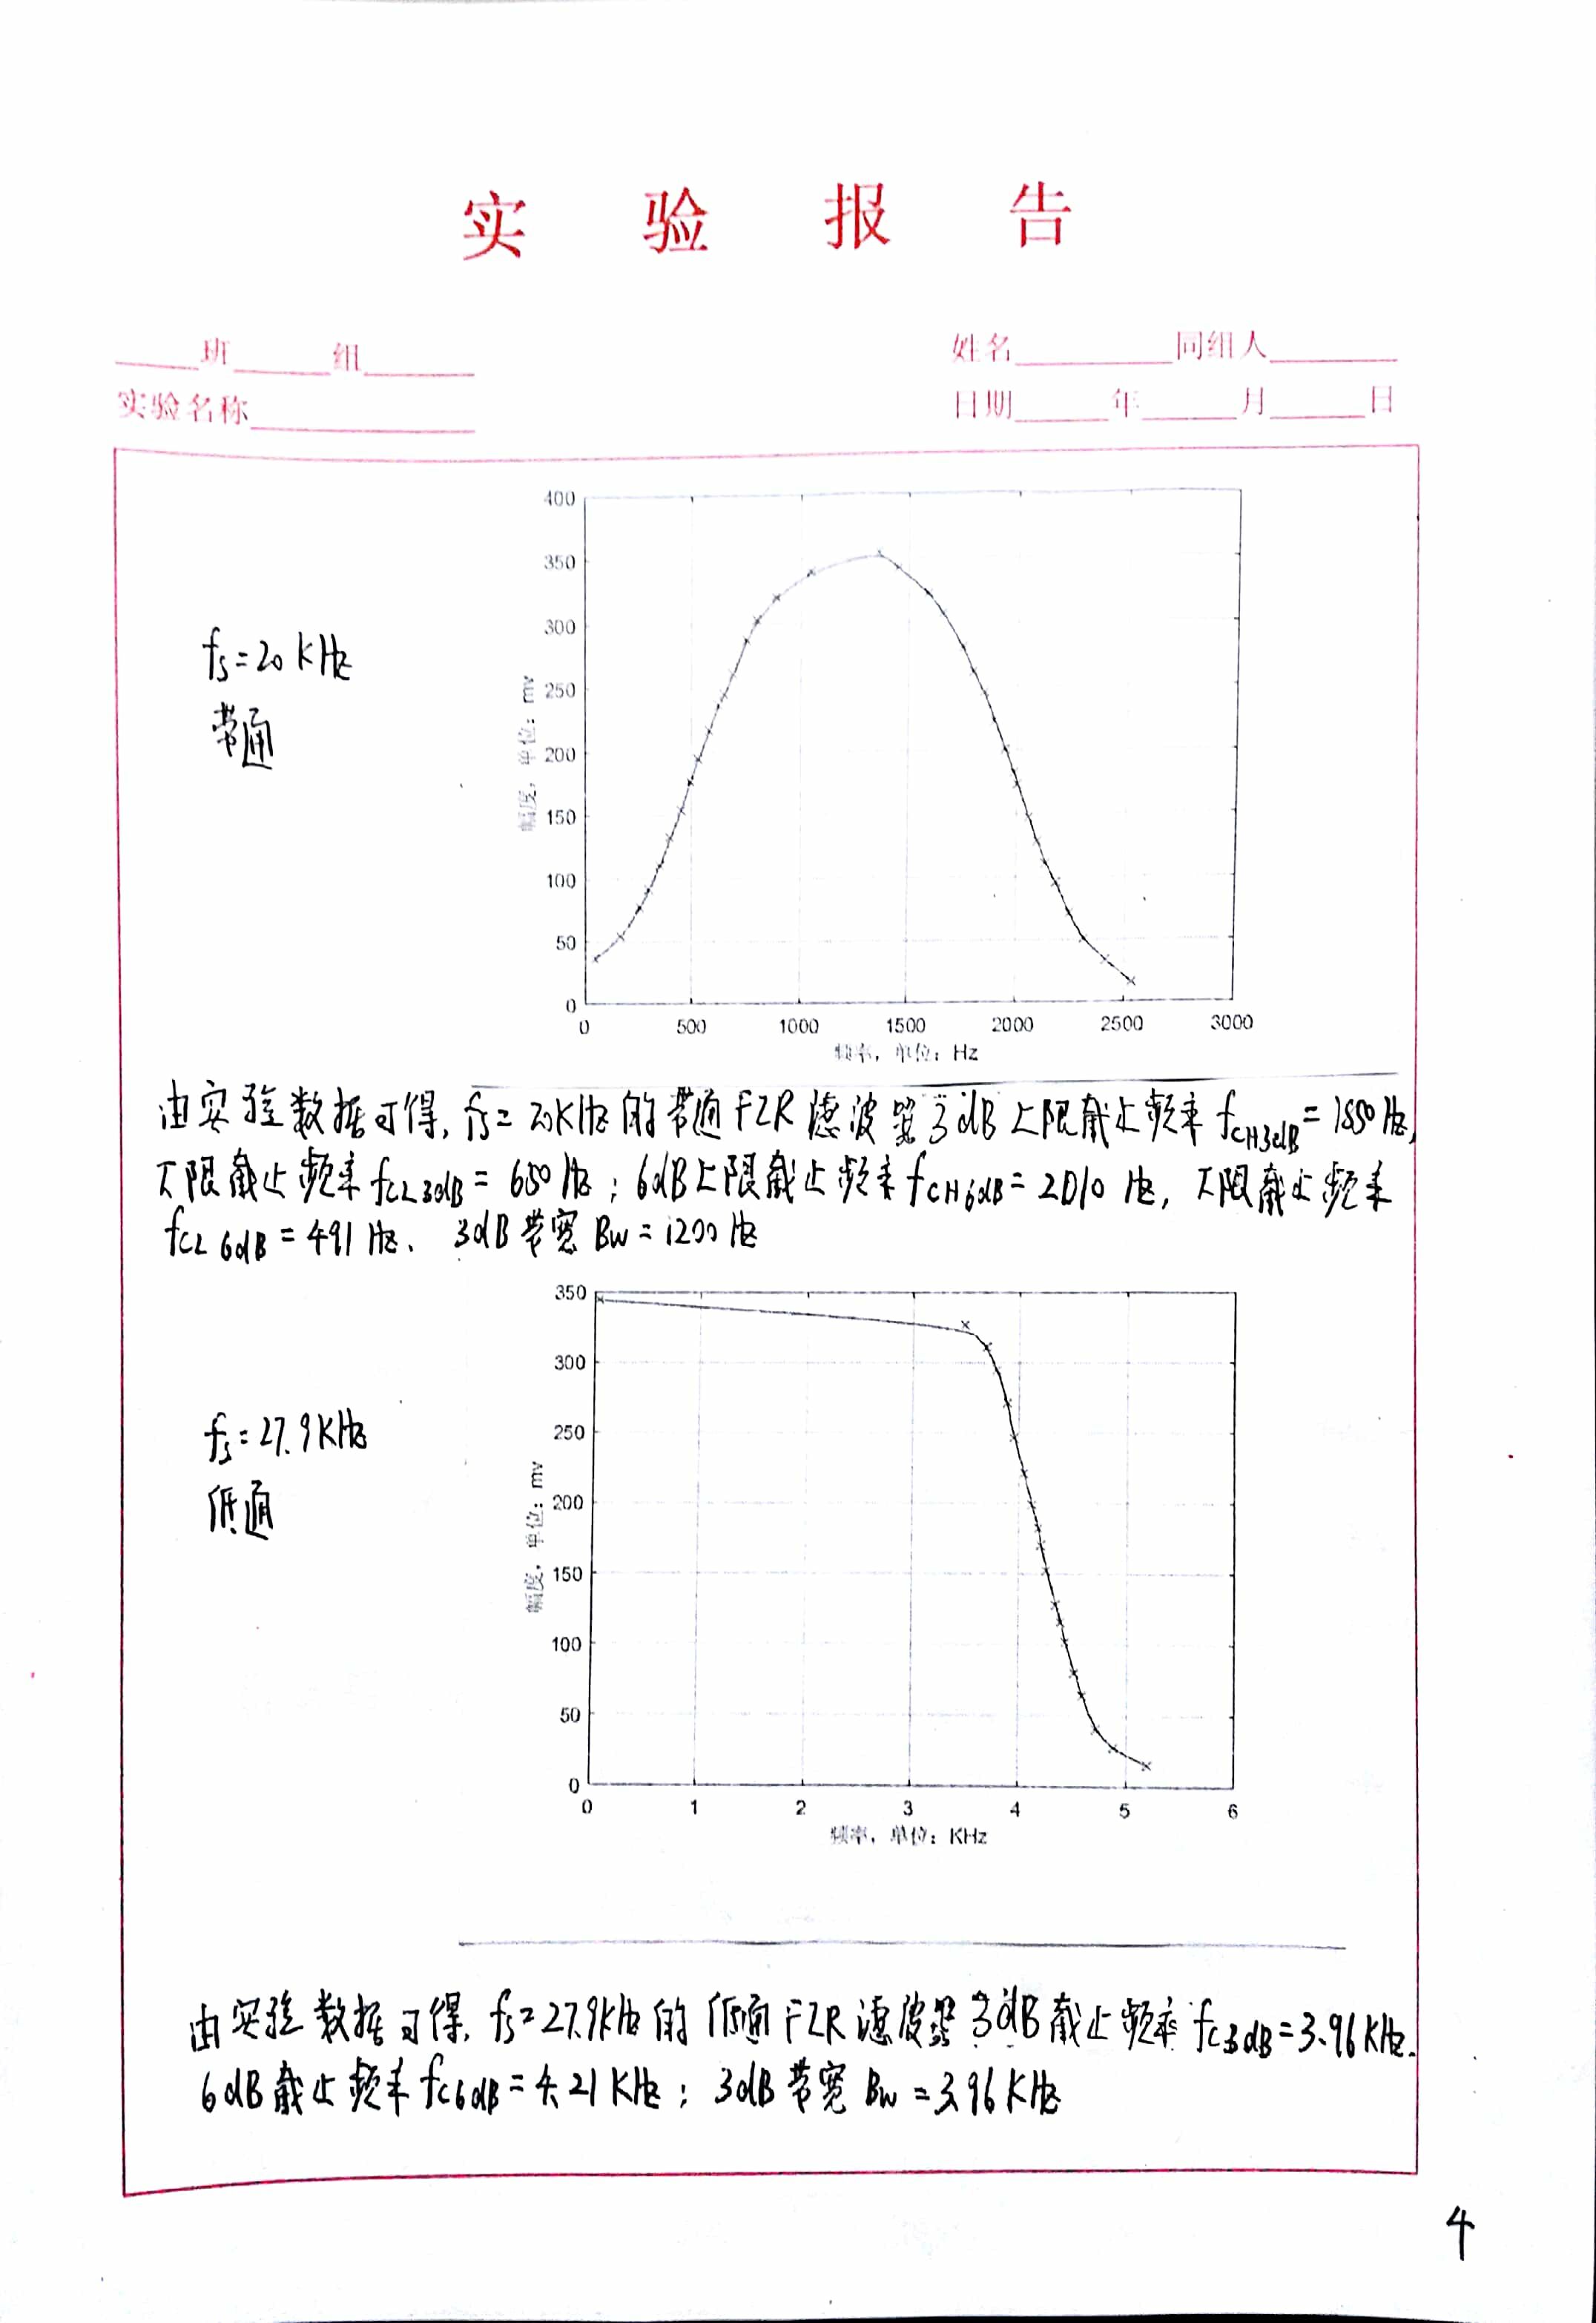 实验报告
班 组 姓名 同组人
实验名称 日期 年 月 日
fs=20KHz
带通
400
350
300
250
200
150
100
50
0
幅度，单位：mv
0 500 1000 1500 2000 2500 3000
频率，单位：Hz
由实验数据可得，fs=20KHz的带通FIR滤波器3dB上限截止频率fCH3dB=1850Hz,
下限截止频率fCL3dB=650Hz；6dB上限截止频率fCH6dB=2010Hz，下限截止频率
fCL6dB=491Hz、3dB带宽Bw=1200Hz
fs=27.9KHz
低通
350
300
250
200
150
100
50
0
幅度，单位：mv
0 1 2 3 4 5 6
频率，单位：KHz
由实验数据可得，fs=27.9kHz的低通FIR滤波器3dB截止频率fC3dB=3.96KHz.
6dB截止频率fC6dB=4.21KHz；3dB带宽Bw=3.96KHz
4